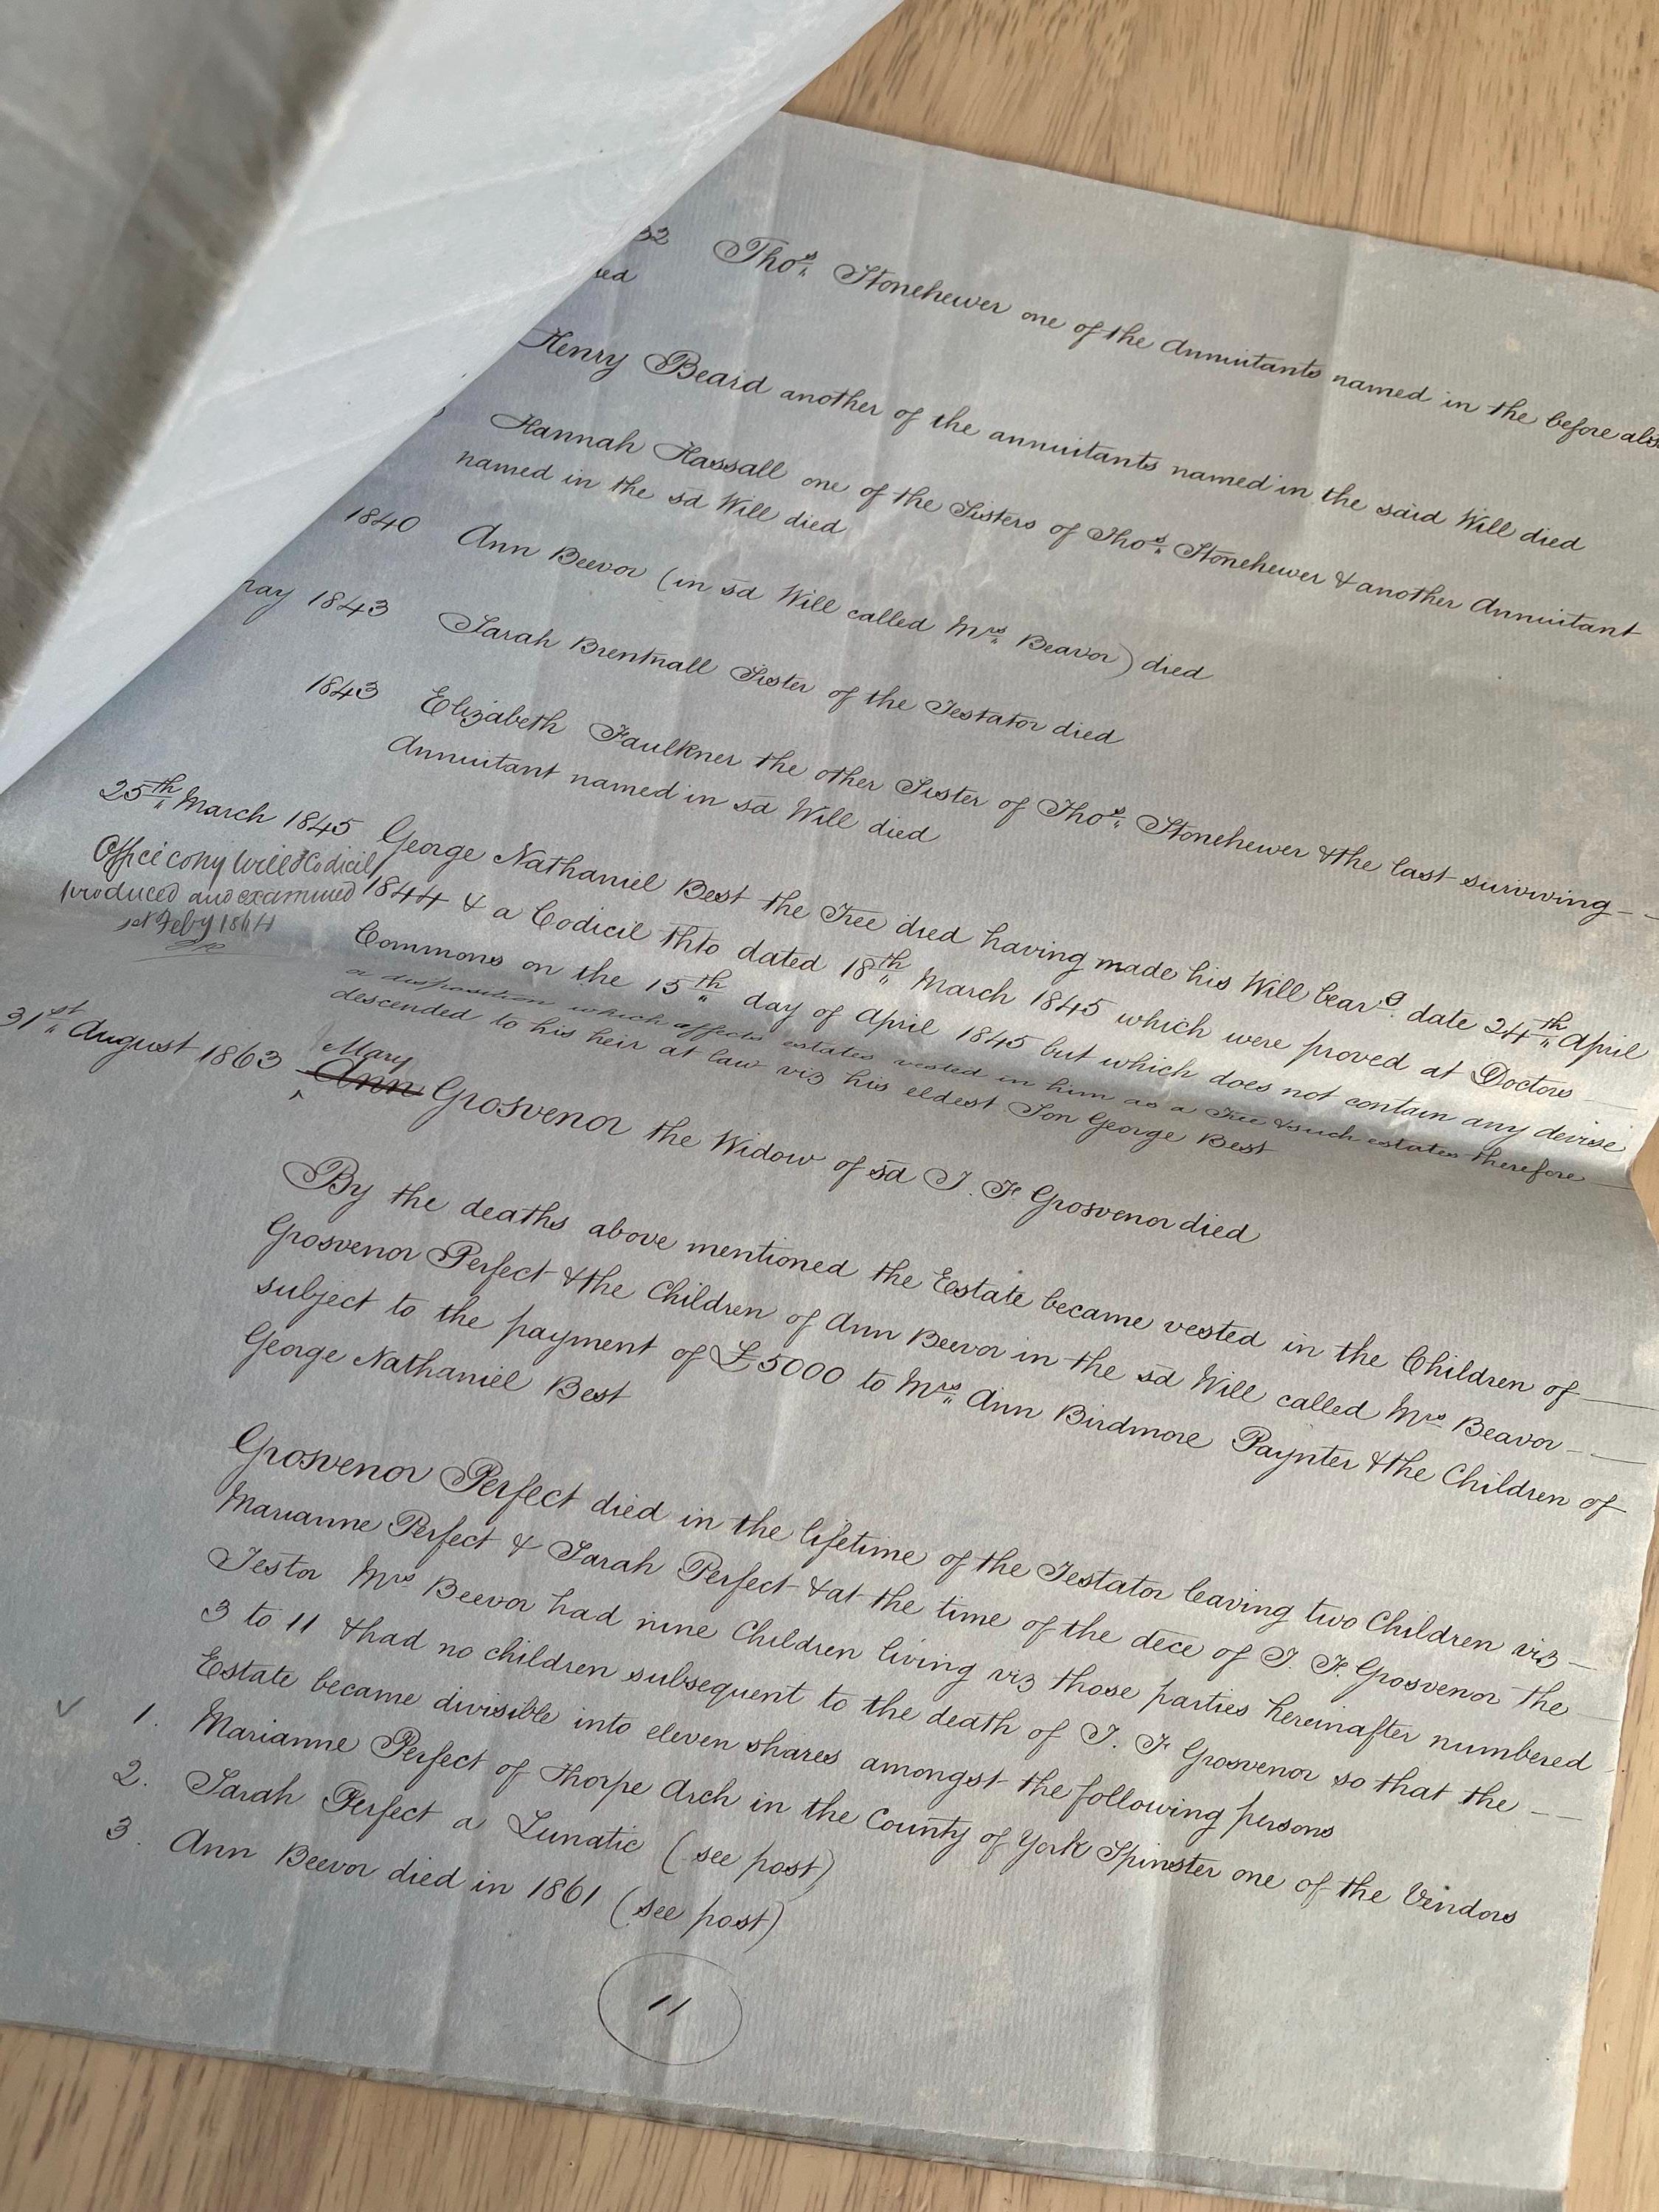 32 Thos. Stonehewer one of the Annuitants named in the before abs
ied
Henry Beard another of the annuitants named in the said Will died
Hannah Hassall one of the Sisters of Thos. Stonehewer & another Annuitant
named in the sd Will died
1840 Ann Beevor (in sd Will called Mrs. Beavor) died
may 1843 Sarah Brentnall Sister of the Testator died
1843 Elizabeth Faulkner the other Sister of Thos. Stonehewer & the last surviving
Annuitant named in sd Will died
25th March 1845 George Nathaniel Best the Tree died having made his Will bearg. date 24th April
Office copy Will & Codicil
produced and examined
1st Feby 1864
1844 & a Codicil thto dated 18th March 1845 which were proved at Doctors
Commons on the 15th day of April 1845 but which does not contain any devise
or disposition which affects estates vested in him as a Tree & such estates therefore
descended to his heir at law viz his eldest Son George Best
Mary
31st August 1863 Ann Grosvenor the Widow of sd J. F. Grosvenor died
By the deaths above mentioned the Estate became vested in the Children of
Grosvenor Perfect & the Children of Ann Beevor in the sd Will called Mrs Beavor
subject to the payment of £5000 to Mrs. Ann Birdmore Paynter & the Children of
George Nathaniel Best
Grosvenor Perfect died in the lifetime of the Testator leaving two Children viz
Marianne Perfect & Sarah Perfect & at the time of the dece of J. F. Grosvenor the
Testor Mrs Beevor had nine Children living viz those parties hereinafter numbered
3 to 11 & had no children subsequent to the death of J. F. Grosvenor so that the
Estate became divisible into eleven shares amongst the following persons
1. Marianne Perfect of Thorpe Arch in the County of York Spinster one of the Vendors
2. Sarah Perfect a Lunatic (see post)
3. Ann Beevor died in 1861 (see post)
11